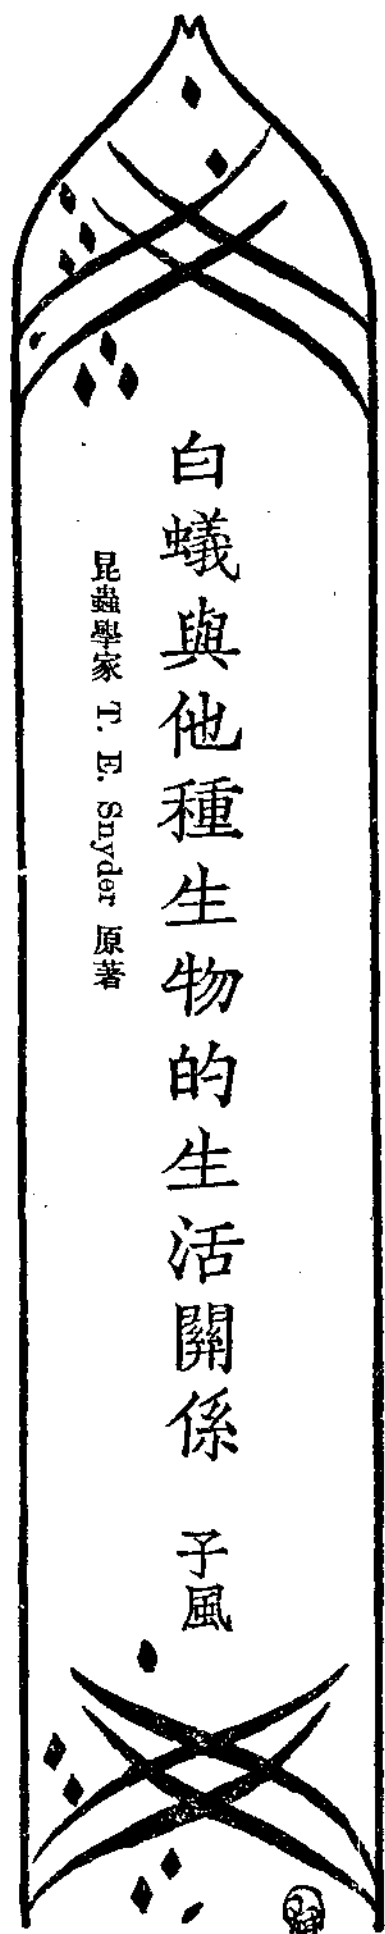 白蟻與他種生物的生活關係 子風
昆蟲學家 T. E. Snyder 原著